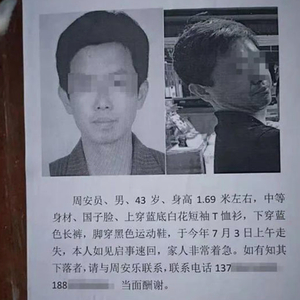 周安员、男、43 岁、身高 1.69 米左右，中等
身材、国子脸、上穿蓝底白花短袖 T 恤衫，下穿蓝
色长裤，脚穿黑色运动鞋，于今年 7 月 3 日上午走
失，本人如见启事速回，家人非常着急。如有知其
下落者，请与周安乐联系，联系电话 137
188 当面酬谢。